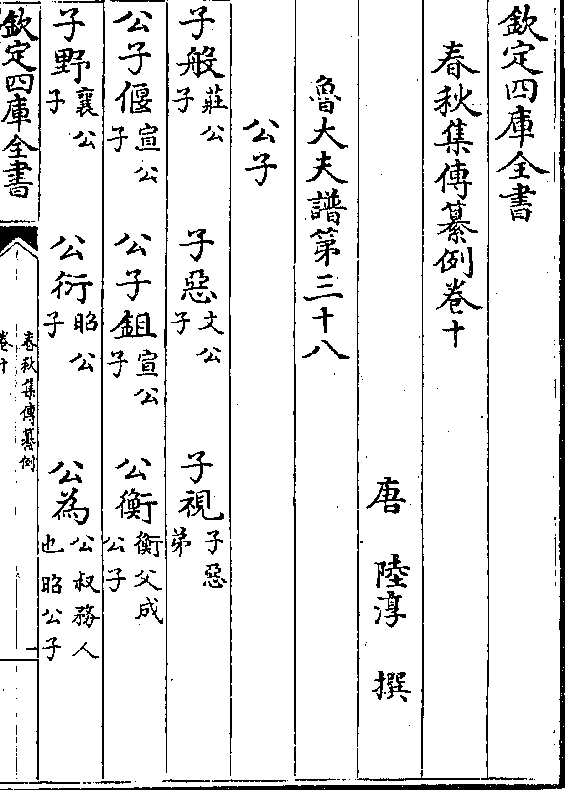 欽定四庫全書
春秋集傳纂例卷十
唐 陸淳 撰
魯大夫譜第三十八
公子
子般莊公子 子惡文公子 子視子惡弟
公子偃宣公子 公子鉏宣公子 公衡衡父成公子
子野襄公子 公衍昭公子 公為公叔務人也昭公子
欽定四庫全書
春秋集傳纂例
卷十
一